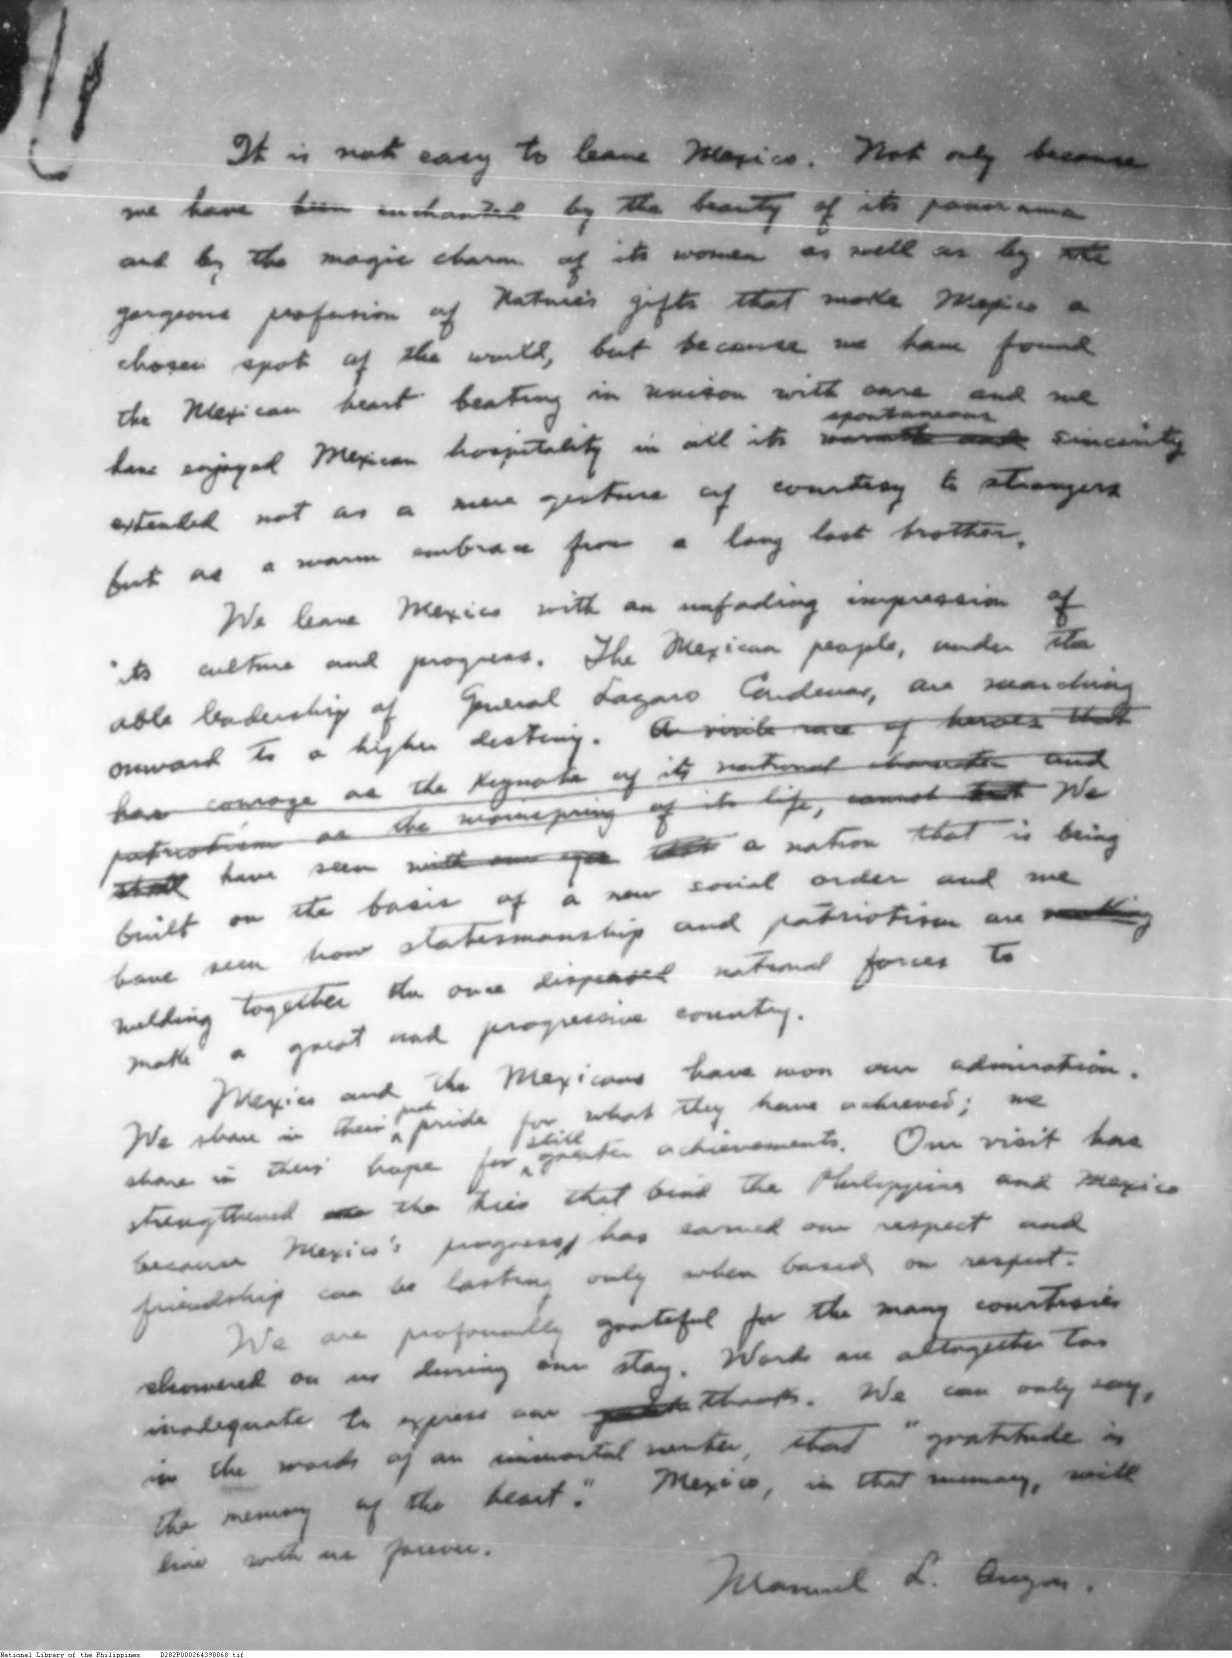 It is not easy to leave Mexico. Not only because
we have been enchanted by the beauty of its panorama
and by the magic charm of its women as well as by the
gorgeous profusion of Nature's gifts that make Mexico a
chosen spot of the world, but because we have found
the Mexican heart beating in unison with ours and we
spontaneous
have enjoyed Mexican hospitality in all its warmth and sincerity
extended not as a mere gesture of courtesy to strangers
but as a warm embrace from a long lost brother.
We leave Mexico with an unfading impression of
its culture and progress. The Mexican people, under the
able leadership of General Lazaro Cardenas, are marching
onward to a higher destiny. A virile race of heroes that
has courage as the keynote of its national character and
patriotism as the mainspring of its life, cannot but We
shall have seen with our eyes that a nation that is being
built on the basis of a new social order and we
have seen how statesmanship and patriotism are
welding together the once dispersed national forces to
make a great and progressive country.
Mexico and the Mexicans have won our admiration.
We share in their just pride for what they have achieved; we
share in their hope for still greater achievements. Our visit has
strengthened the ties that bind the Philippines and Mexico
because Mexico's progress has earned our respect and
friendship can be lasting only when based on respect.
We are profoundly grateful for the many courtesies
showered on us during our stay. Words are altogether too
inadequate to express our thanks. We can only say,
in the words of an immortal writer, that "gratitude is
the memory of the heart." Mexico, in that memory, will
live with us forever.
Manuel L. Quezon.
National Library of the Philippines D282P000264390068.tif